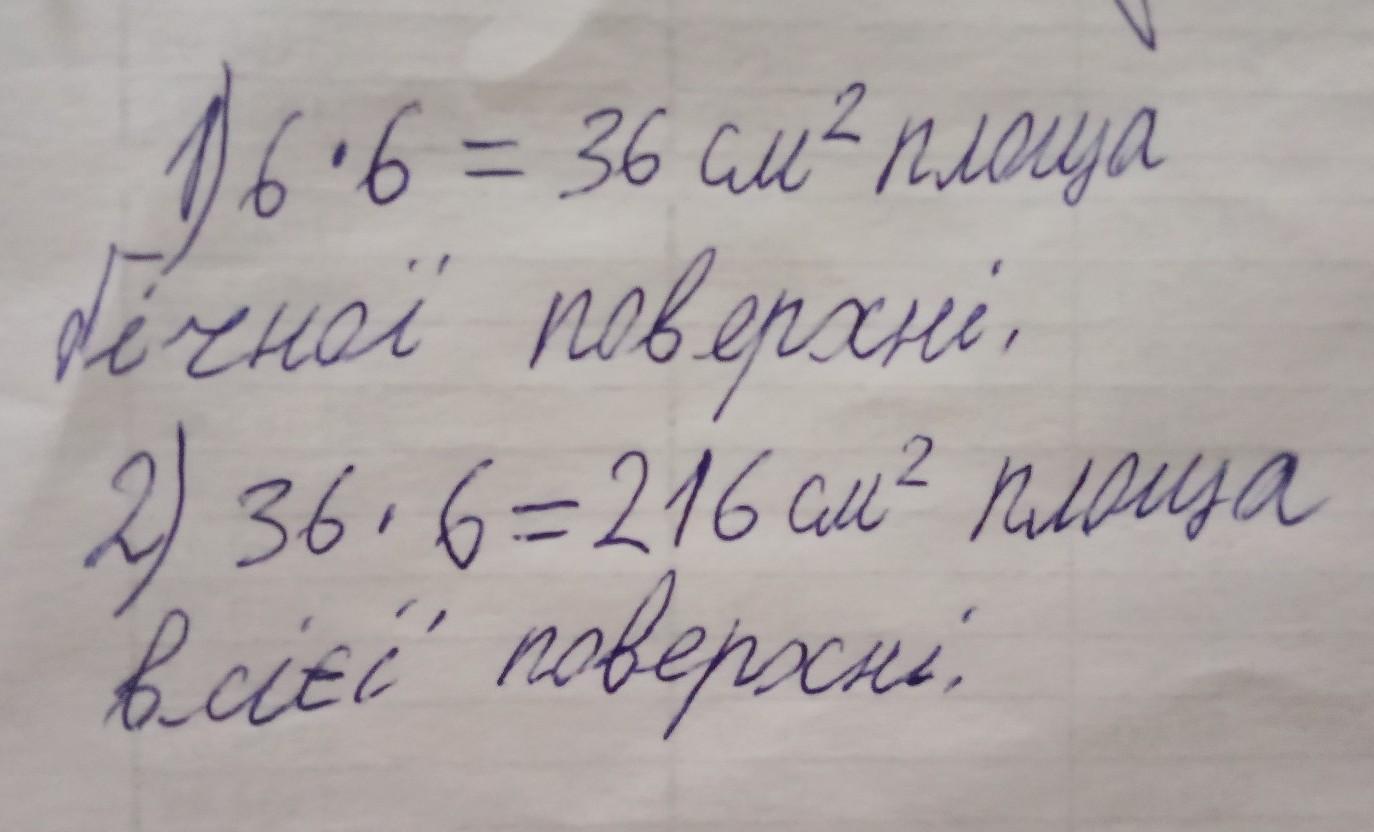 1) 6 · 6 = 36 см² площа
бічної поверхні.
2) 36 · 6 = 216 см² площа
всієї поверхні.